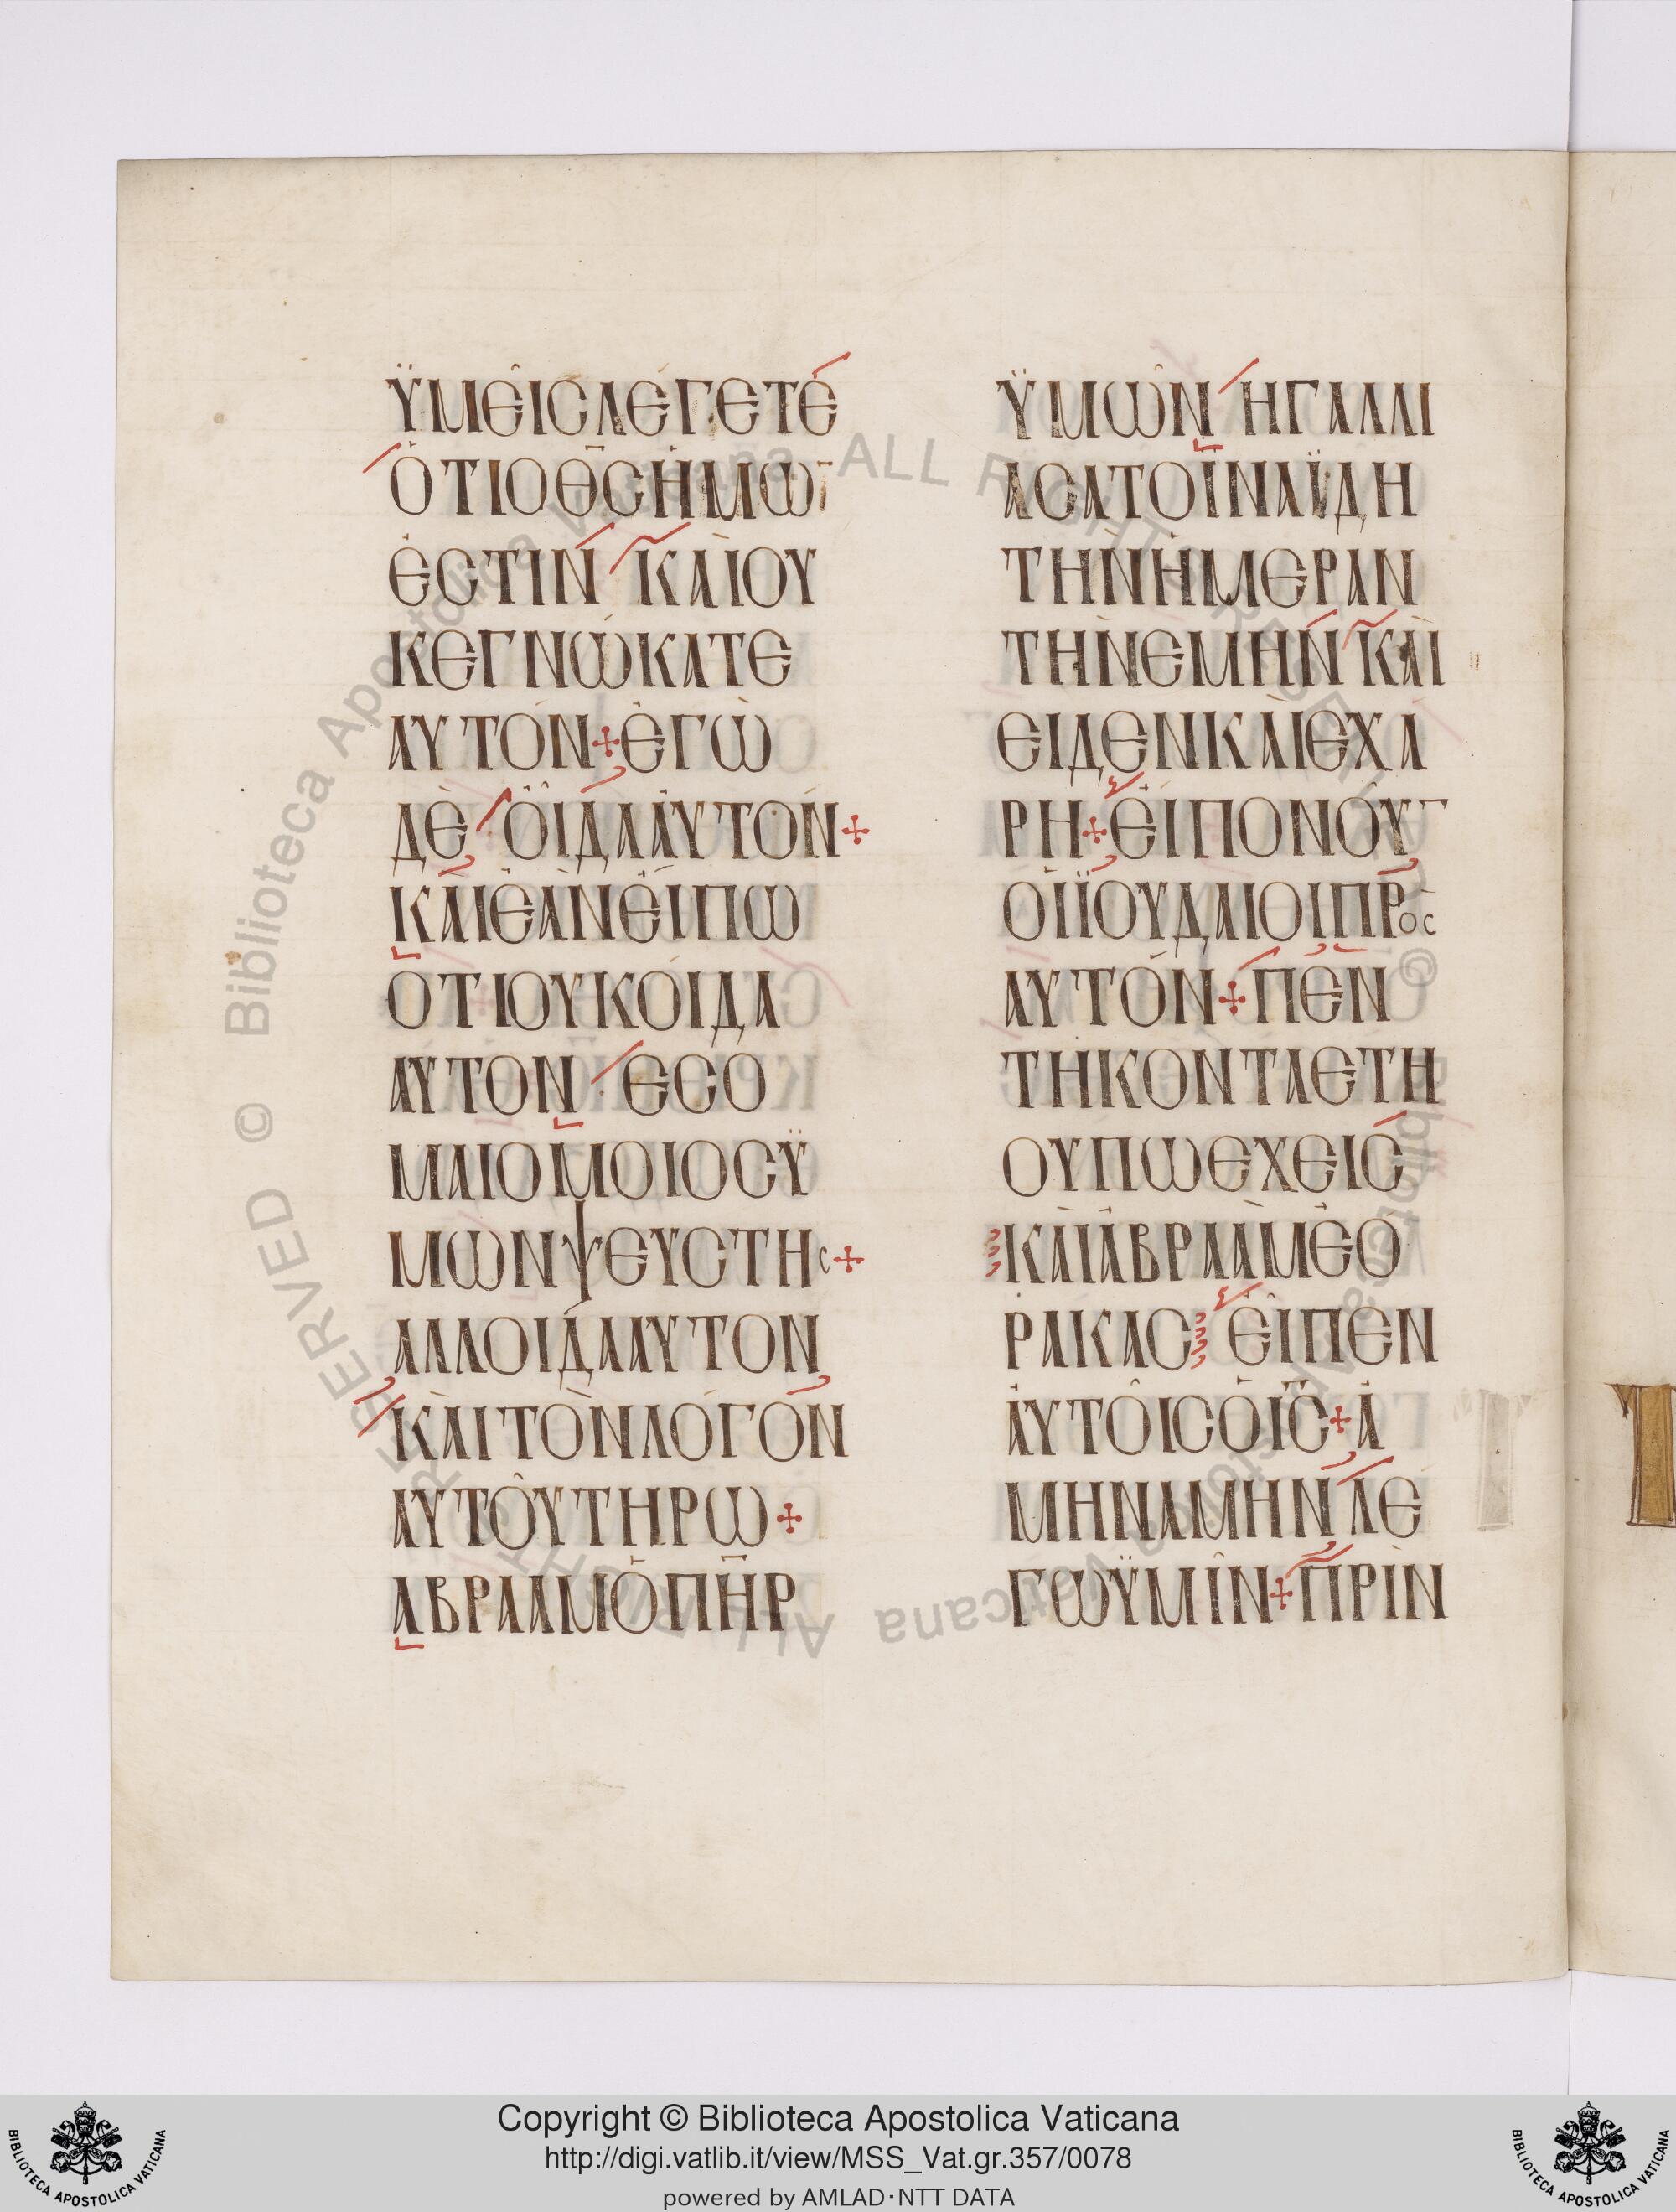 ΫΜΕῖCΛΕΓΕΤΕ
ὉΤΙΟΘ̅C̅ἩΜΩ̅
ἘCΤΙΝ ΚΑῚΟΥ
ΚΕΓΝΏΚΑΤΕ
ΑΥΤΌΝ+ἘΓῺ
ΔῈ ΟἾΔΑΑΥΤΌΝ+
ΚΑῚἘᾺΝΕἼΠΩ
ΟΤΙΟΥΚΟΊΔΑ
ΑΥΤΟΝ ΕCΟ
ΜΑΙΟΜΟΙΟCΫ
ΜΩΝΨΕΥCΤΗC+
ΑΛΛΟΙΔΑΑΥΤΟΝ
ΚΑῚΤῸΝΛΌΓΟΝ
ΑΥΤΟῦΤΗΡΩ+
ΑΒΡΑΑΜὉΠ̅Η̅Ρ̅
ΫΜῶΝ ΗΓΑΛΛΙ
ΑCΑΤΟΪΝΑΪΔΗ
ΤῊΝἩΜΕΡΑΝ
ΤῊΝΕΜῊΝ ΚΑῚ
ΕΙΔΕΝΚΑῚΕΧΑ
ΡΗ+ΕἾΠΟΝΟΥ̓̅
ΟἹΪΟΥΔΑΙΟΙΠΡΟC
ΑΥΤΌΝ+ΠΕΝ
ΤΗΚΟΝΤΑΕΤΗ
ΟΥΠΩΕΧΕΙC
ΚΑῚἈΒΡΑᾺΜΕΟ
ΡΑΚΑC ΕἾΠΕΝ
ΑΥΤΟῖCὉΙ̅C̅+Ἀ
ΜΗΝΑΜΗΝ ΛΕ
ΓΩΫΜῖΝ+ΠΡῚΝ
© Biblioteca Apostolica Vaticana ALL RIGHTS RESERVED © Biblioteca Apostolica Vaticana ALL RIGHTS RESERVED
Copyright © Biblioteca Apostolica Vaticana
http://digi.vatlib.it/view/MSS_Vat.gr.357/0078
powered by AMLAD·NTT DATA
BIBLIOTECA APOSTOLICA VATICANA
BIBLIOTECA APOSTOLICA VATICANA